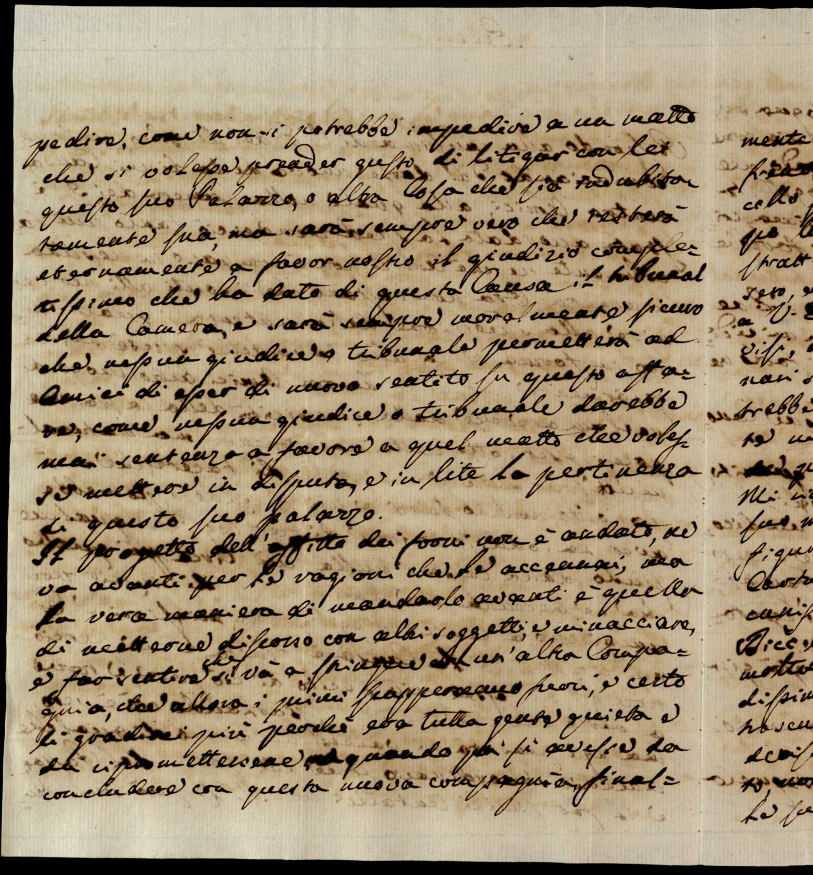 pedire, come non si potrebbe impedire a un matto
che si volesse prender gusto di litigar con lei
questo suo Palazzo, o altra Cosa che sia indubita
tamente sua, ma sarà sempre vero che resterà
eternamente a favor nostro il giudizio comple=
tissimo che ha dato di questa Causa il tribunal
della Camera, e sarà sempre moralmente sicuro
che nessun giudice o tribunale permetterà ad
Amici di esser di nuovo sentito su questo affa=
re, come nessun giudice o tribunale darebbe
mai sentenza a favore a quel matto che voles=
se mettere in disputa, e in lite la pertinenza
di questo suo palazzo.
Il progetto dell'affitto dei forni non è andato, ne
va avanti per le ragioni che le accennai, ma
la vera maniera di mandarlo avanti è quella
di metterne discorso con altri soggetti, e minacciare,
e far sentire che si và a stringere con un'altra Compa=
gnia, che allora i primi scapperanno fuori, e certo
li gradirei più perchè era tutta gente quieta e
da ripromettersene, e quando poi si avesse da
concludere con questa nuova compagnia, final=
mente
cello
stratt
seto,
a V.
visi,
nari
trebbe
te
Mi
suo
figur
molto
dissim
to, non
le